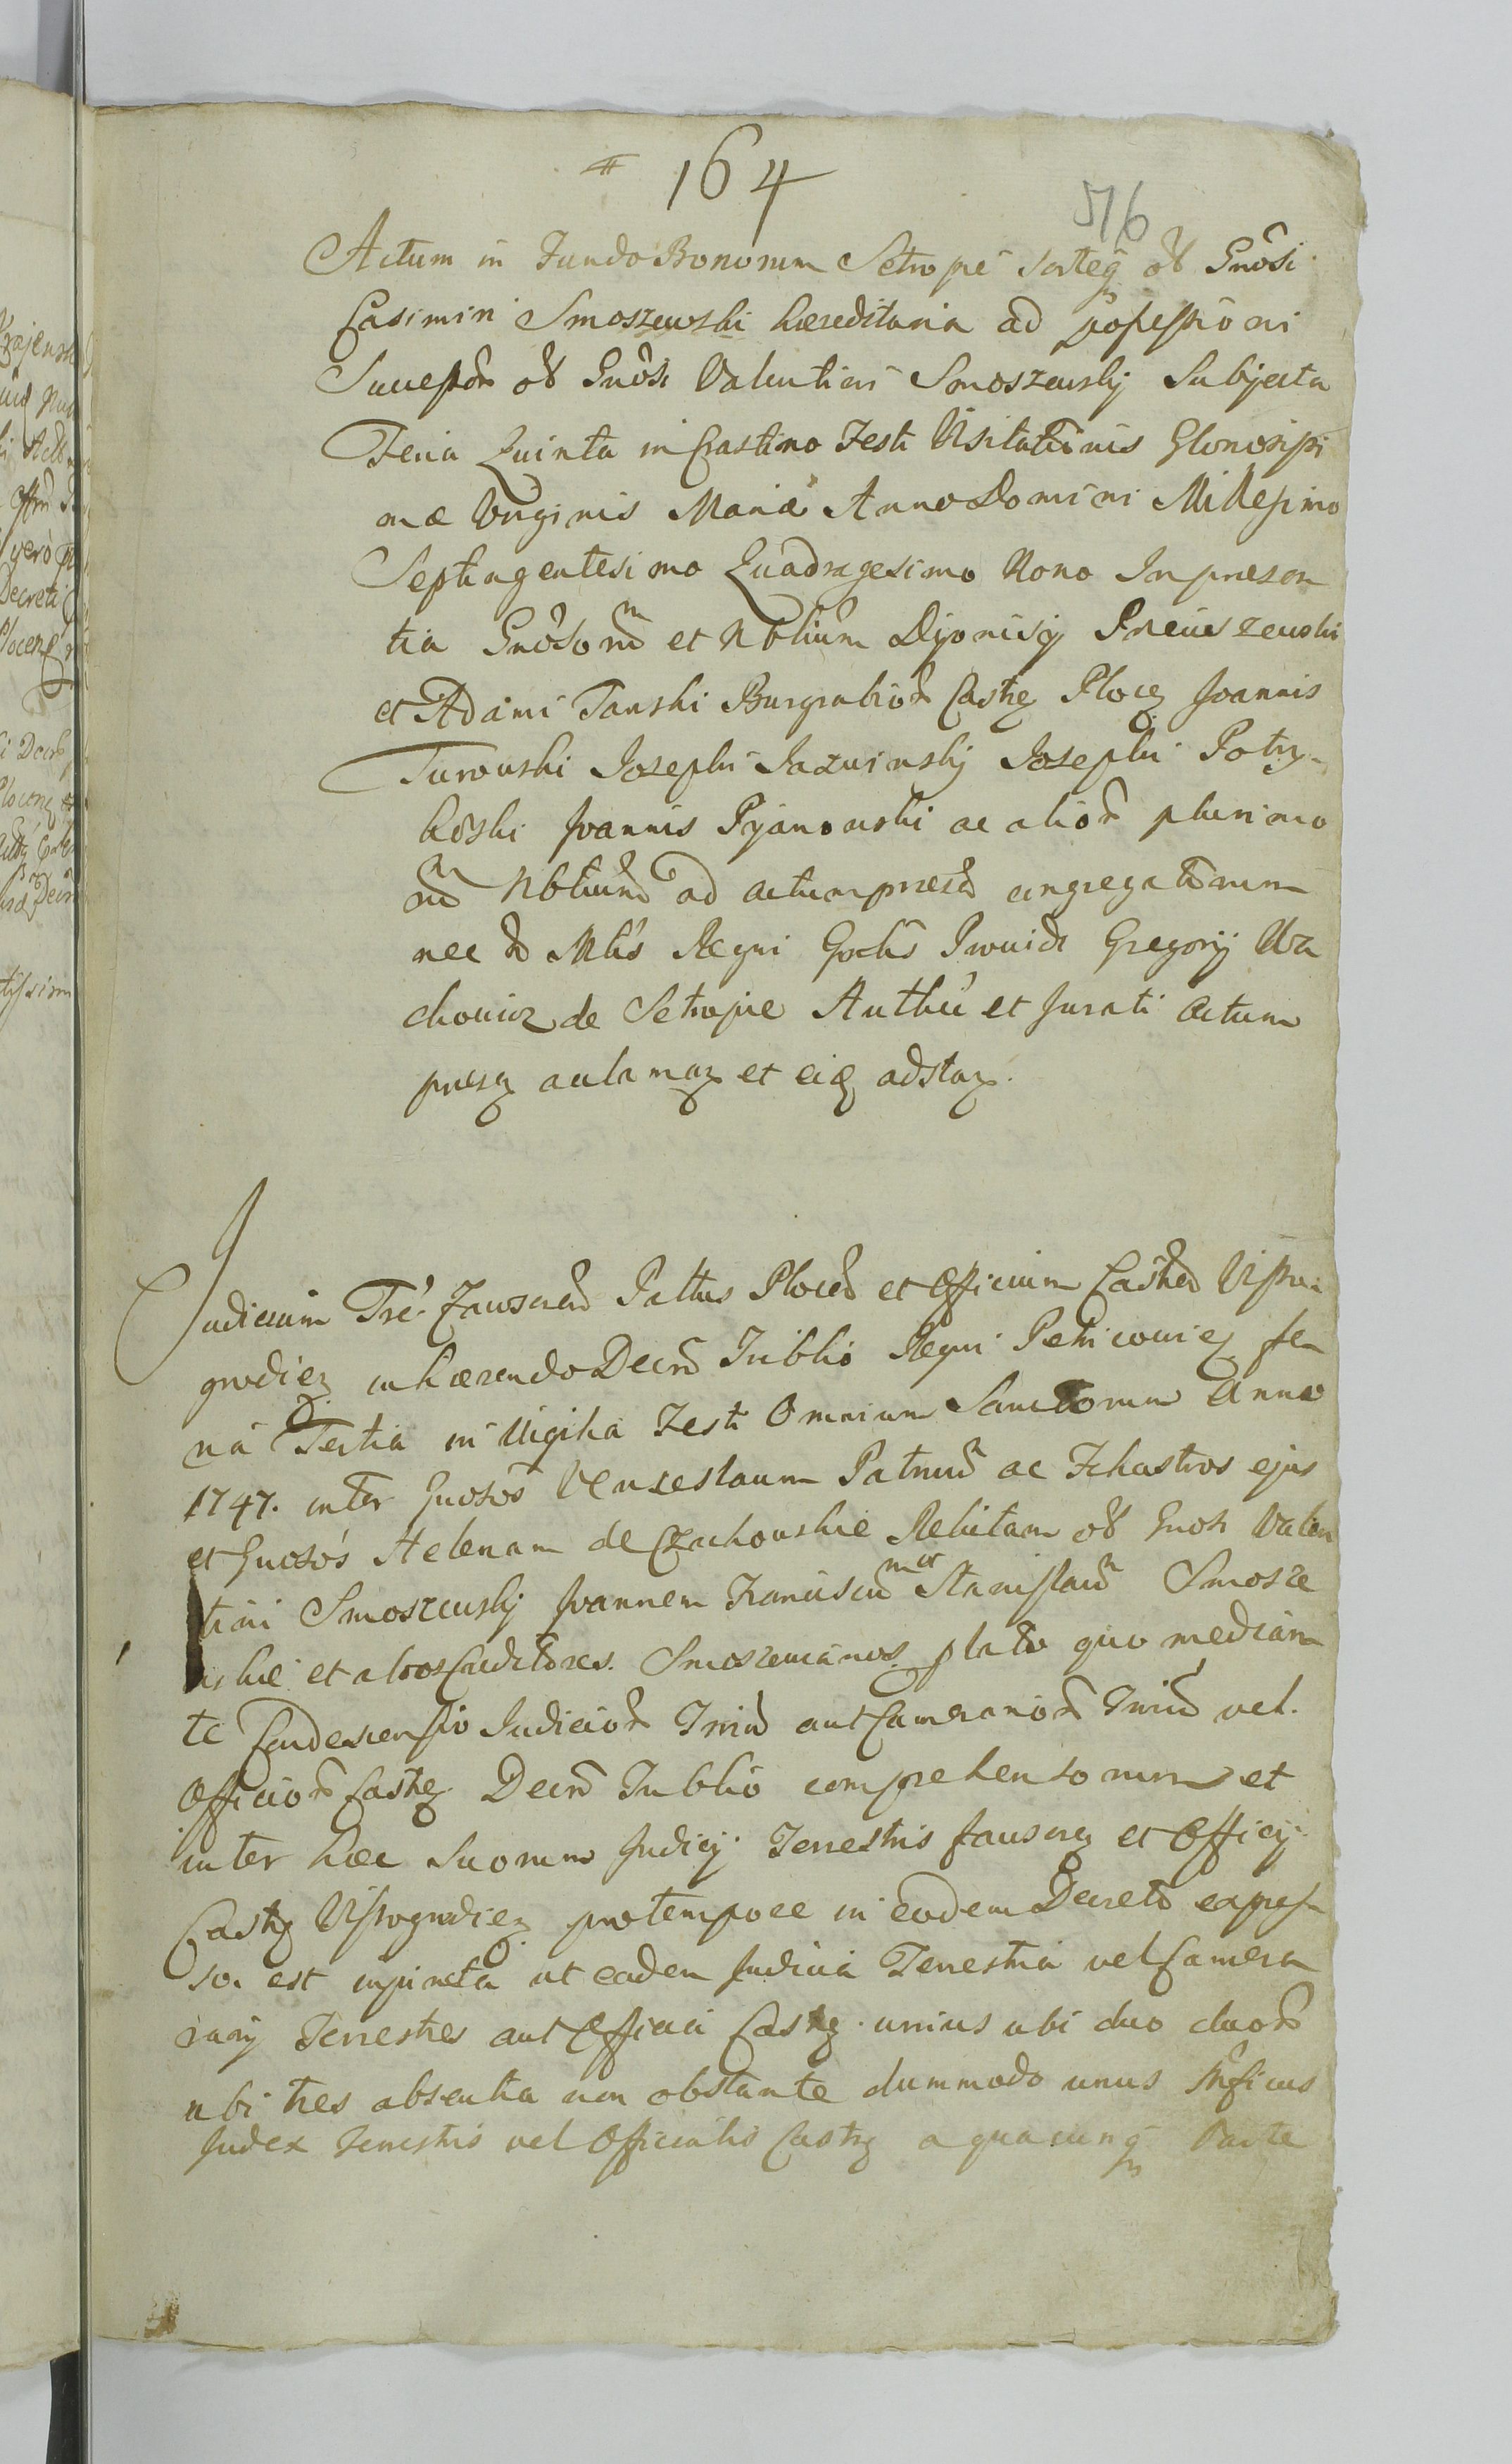 164
516
Actum in Fundo Bonorum Setropie Sorteq; ol Gnosi
Casimiri Smoszewski hæreditaria ad possessioni
Successor ol Gnosi Valentini Smoszewskij Subjecta
Feria Quinta in Crastino Festi Visitationis Gloriosissi
mæ Virginis Mariæ Anno Domini Millesimo
Septingentesimo Quadragesimo Nono In præsen
tia Gnosorum et Nblium Dyonisij
et Adami Tanski Burgrabior Castr Ploc Joannis
Turowski Josephi Jazwinskij Josephi Potry-
koski Joannis Pijanowski ac alior plurimo
rum Nblium ad actum præs congregatorum
nec Mlis Regni Gnlis Provid Gregorij Wa
chowicz de Setropie Authci et Jurati actum
præs aclaman et eiq adstan.
Judicium Tre Zawscren Pallus Plocen et Officium Castren Visso
grodien inhærendo Decre Tribli Regni Petricovien fe
ria Tertia in Vigilia Festi Omnium Sanctorum Anno
1747. inter Gnosos Venceslaum Patrem ac Filiastros ejus
et Gnosos Helenam de Czachowskie Relictam ol Gnosi Valen
tini Smoszewskij Joannem Franciscum et Stanislaum Smosze
wskie et alios Creditores Smoszewianos. plato quo median
te Condescensio Judicior Trium aut Camerarior Trium vel.
Officior Castr Decre Tribli comprehensorum et
inter hæc Suorum Judicij Terrestris Zawscre et Officij
Castr Vissogrodien pro tempore in eodem Decreto expres
so. est injuncta ut eadem Judicia Terrestria vel Camera
rarij Terrestres aut Officia Castr unius ubi duo duor
ubi tres absentia non obstante dummodo unus
Judex Terrestris vel Officialis Castr a quacunq; Parte